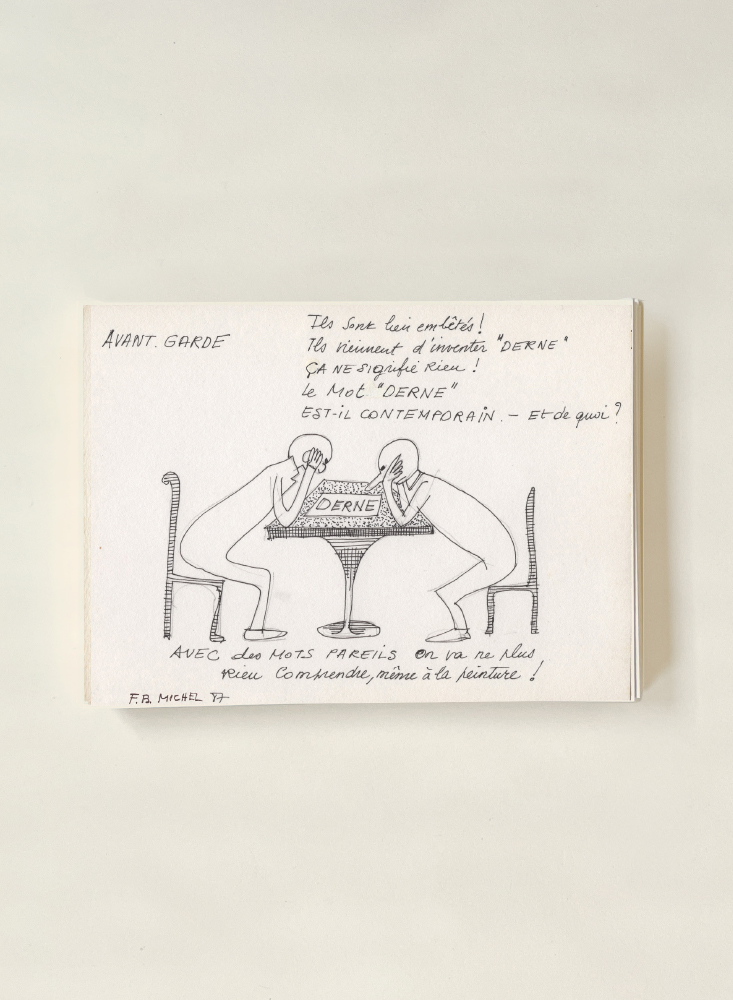 AVANT. GARDE
Ils sont bien embêtés!
Ils viennent d'inventer "DERNE"
ÇA NE signifie Rien!
Le Mot "DERNE"
EST-iL CONTEMPORAiN. — Et de quoi?
DERNE
AVEC des MOTS PAREiLS on va ne plus
Rien Comprendre, même à la peinture!
F.B. MICHEL 97